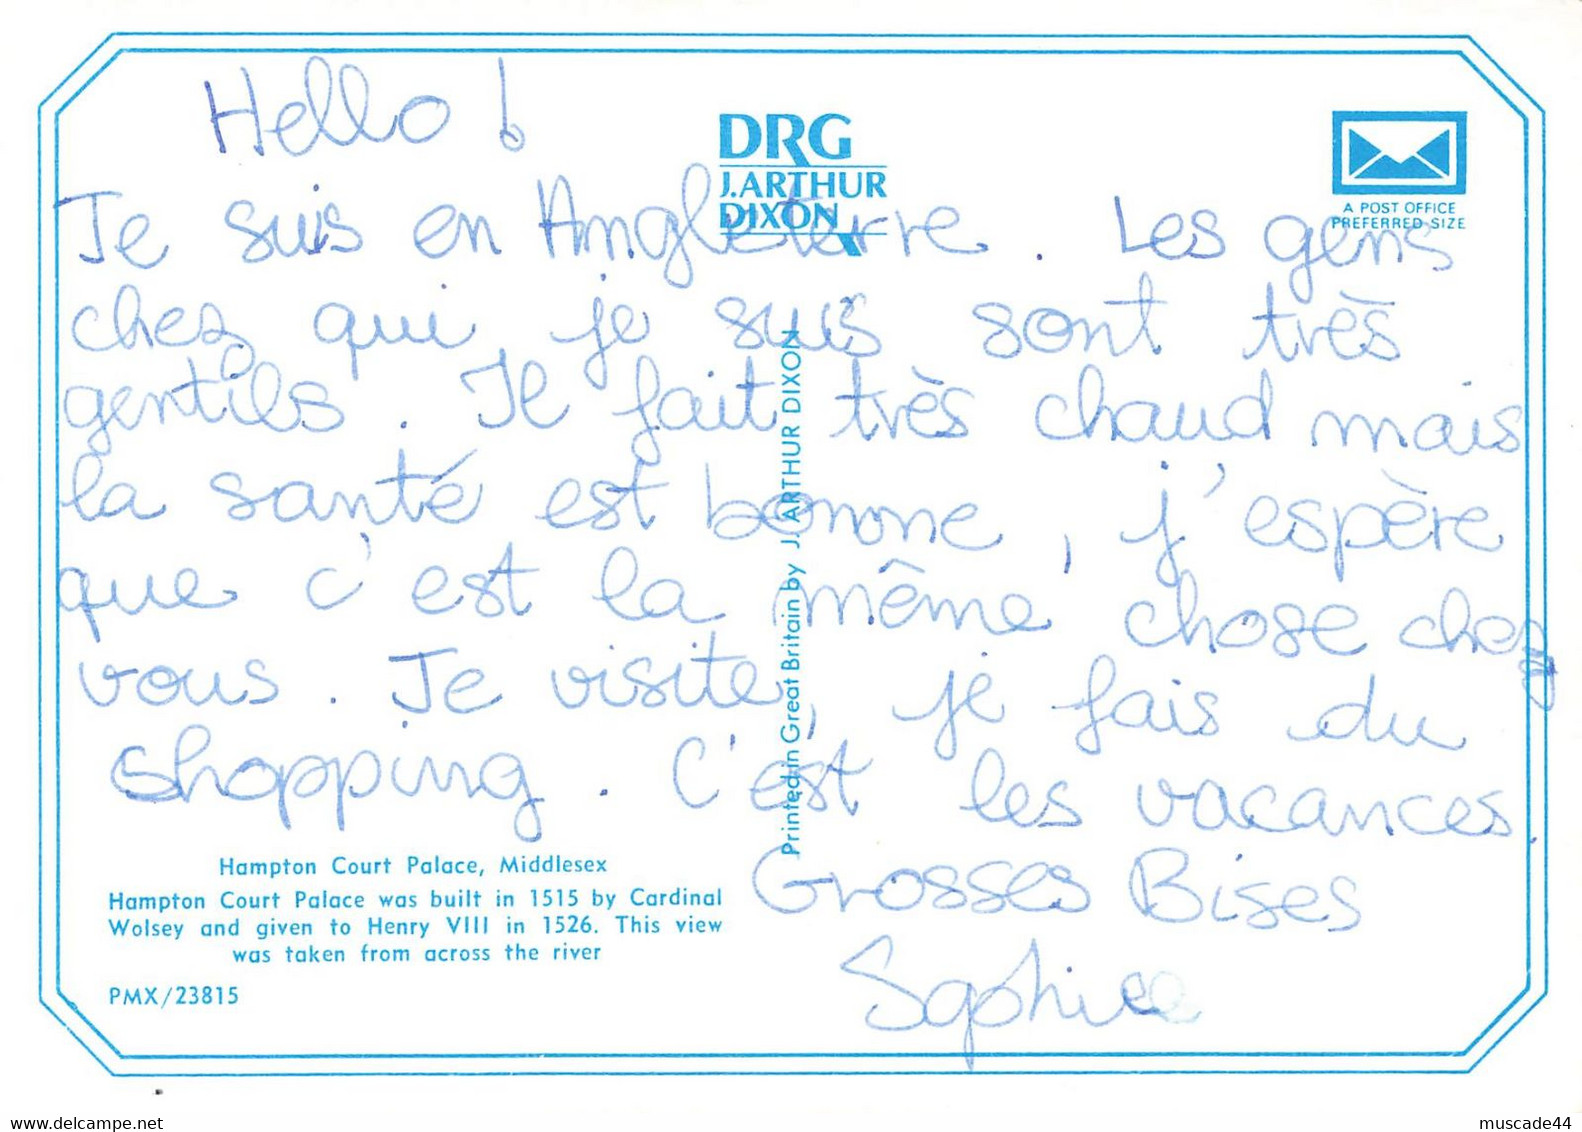 Hello !
DRG
J. ARTHUR
DIXON
A POST OFFICE
PREFERRED SIZE
Je suis en Angleterre. Les gens
chez qui je suis sont très
gentils. Il fait très chaud mais
la santé est bonne, j'espère
que c'est la même chose chez
vous. Je visite, je fais du
shopping. C'est les vacances.
Grosses Bises
Sophie
Printed in Great Britain by J. ARTHUR DIXON
Hampton Court Palace, Middlesex
Hampton Court Palace was built in 1515 by Cardinal
Wolsey and given to Henry VIII in 1526. This view
was taken from across the river
PMX/23815
www.delcampe.net
muscade44